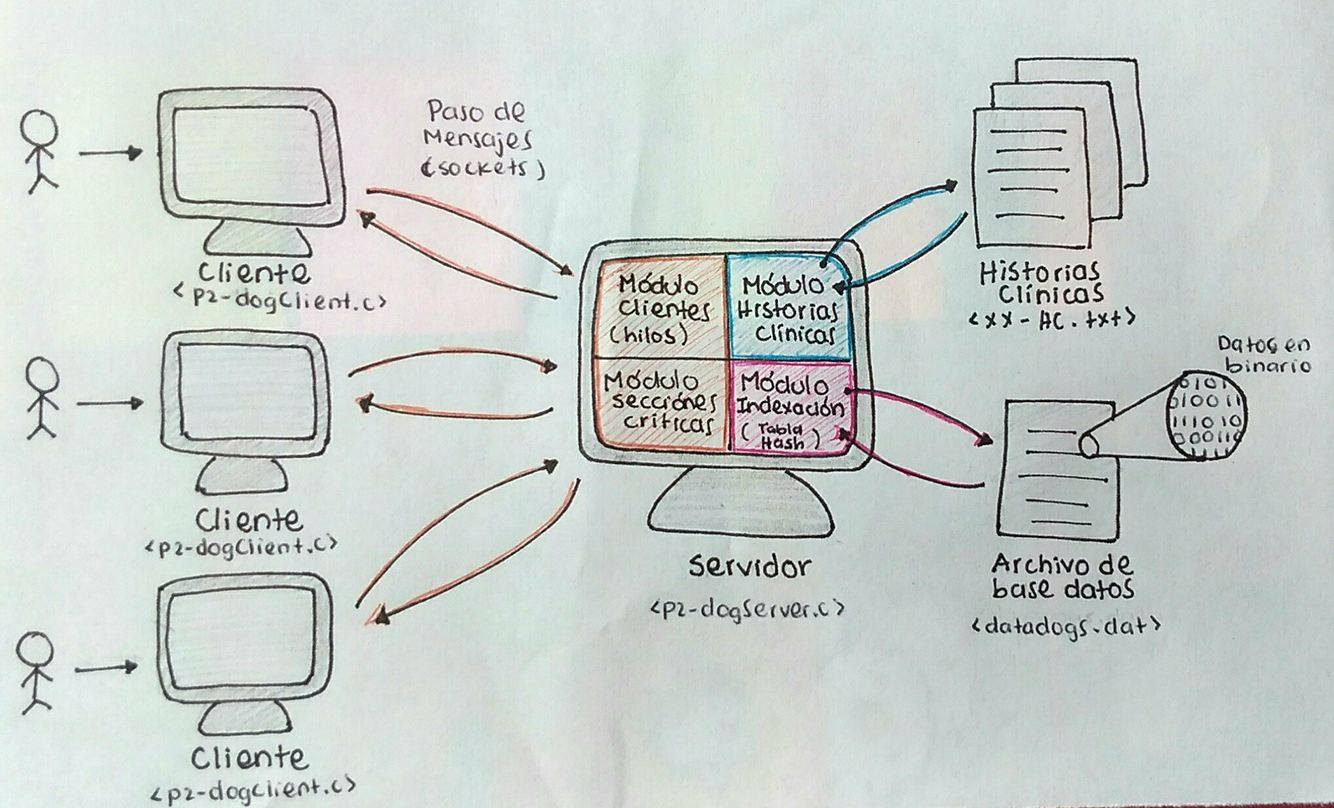 Paso de
Mensajes
(sockets)
Cliente
<p2-dogClient.c>
Cliente
<p2-dogClient.c>
Cliente
<p2-dogClient.c>
Módulo
Clientes
(hilos)
Módulo
Historias
Clínicas
Módulo
secciónes
críticas
Módulo
Indexación
(Tabla
Hash)
Servidor
<p2-dogServer.c>
Historias
Clínicas
<xx-HC.txt>
Datos en
binario
0101
010011
111010
00011
Archivo de
base datos
<datadogs.dat>